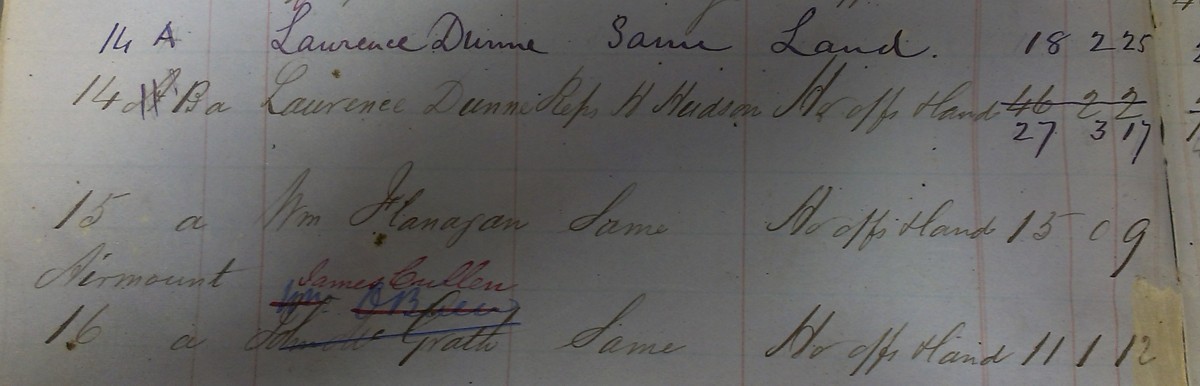 14 A Laurence Dunne Same Land. 18 2 25
14 B a Laurence Dunne Reps H Hudson Ho offs & land 46 2 2
27 3 17
15 a Wm Flanagan Same Ho offs & land 15 0 9
Airmount James Cullen
Wm. O'Brien
16 a John McGrath Same Ho offs & land 11 1 12